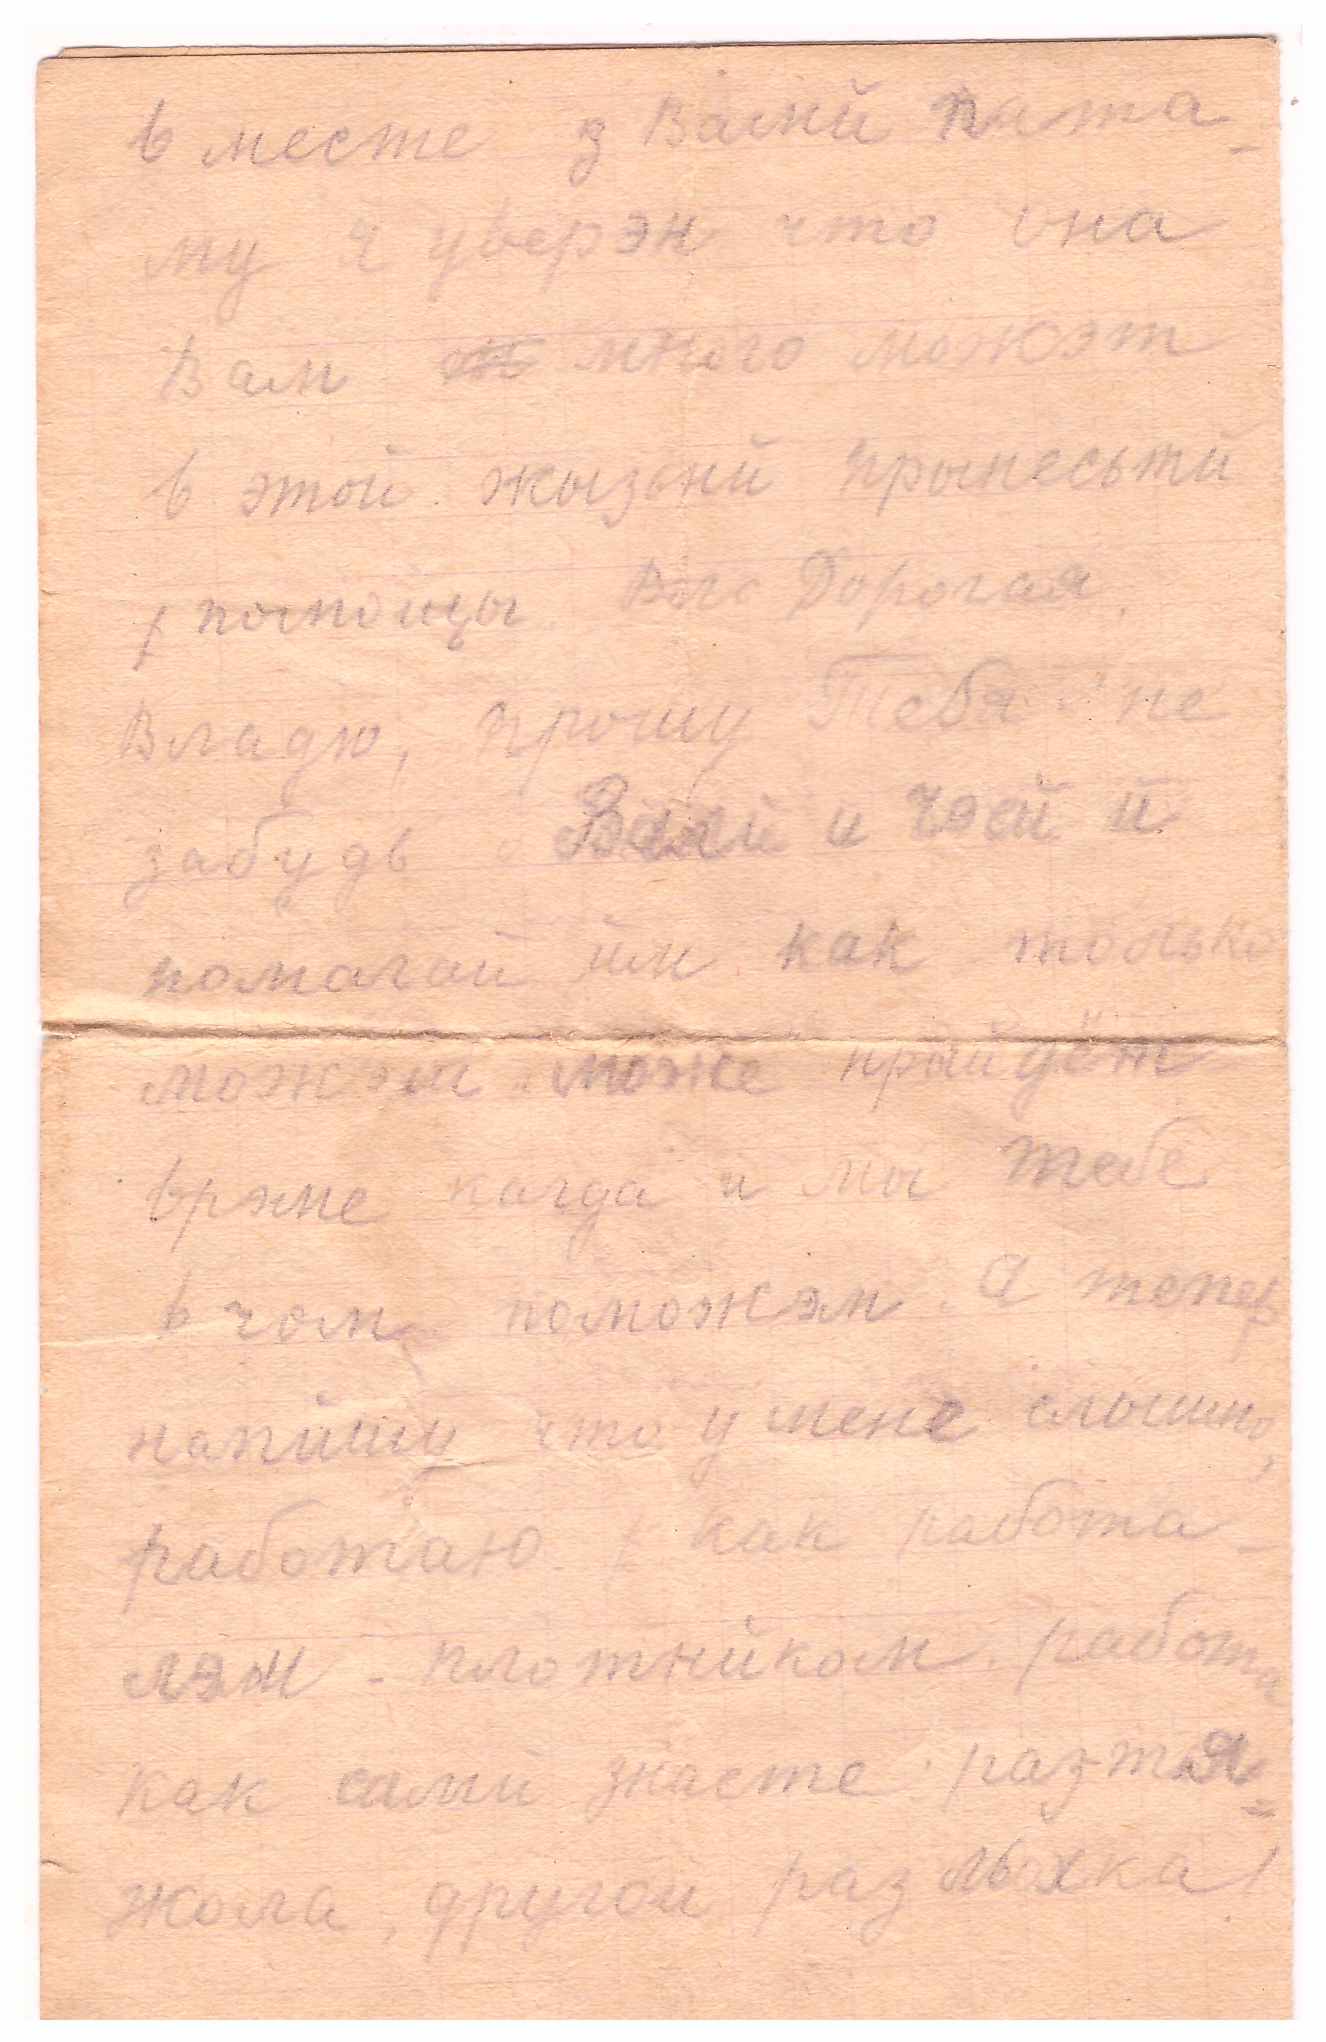 в месте з Вамй пата-
му я уверэн что она
Вам много можэт
в этой жызьнй прынесьтй
помощы. Дорогая,
Владю, прошу Тебя не
забудь и й
помагай йм как только
можэш може прыйдёт
врэме кагда и мы тебе
в чом поможэм. А тепер
напйшу что у мене слышно,
работаю. как работа-
лэм - плотнйком. работа
как самй знаете: раз тя-
жола, другой раз льохка!